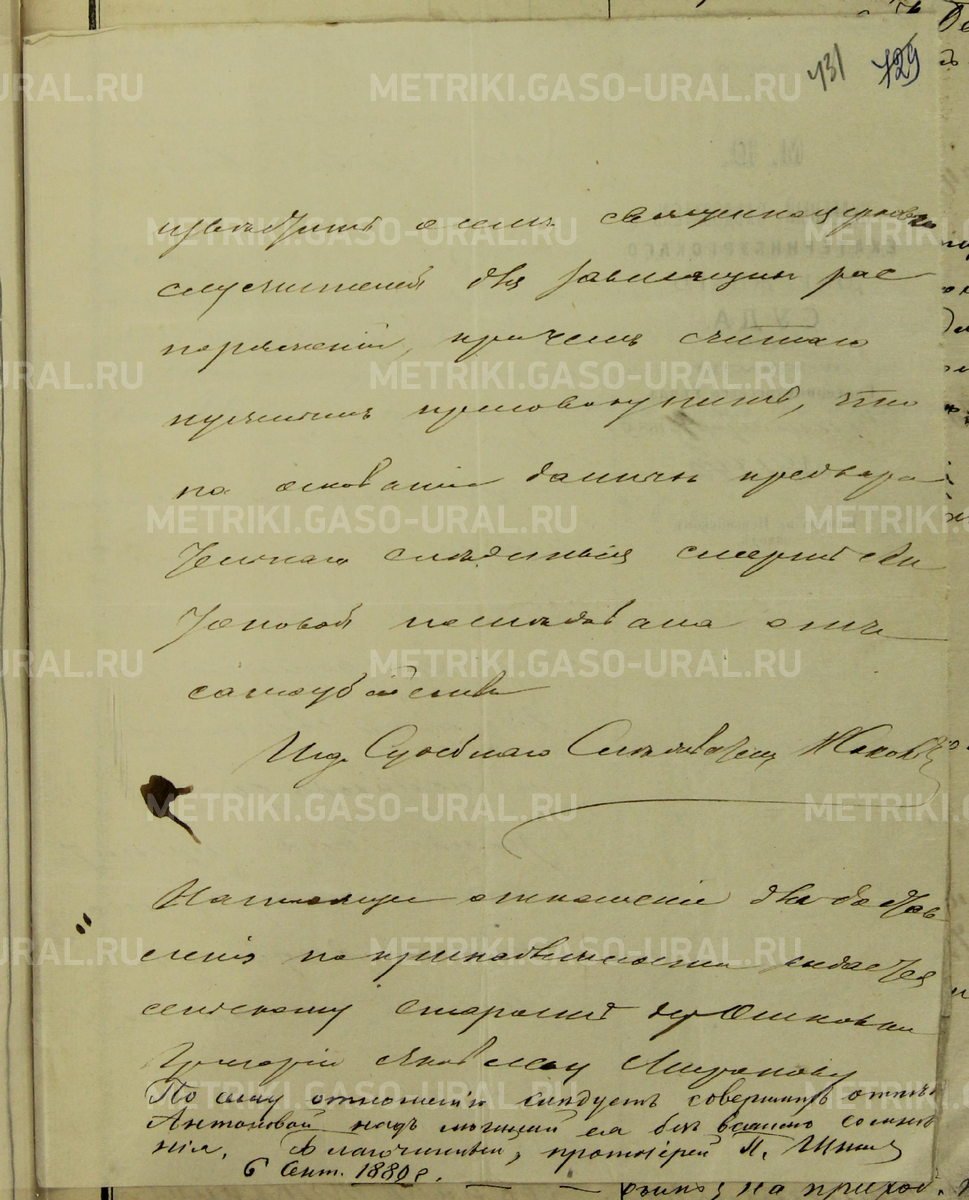 131 129
METRIKI.GASO-URAL.RU
извѣстить о семъ священноцерковно
служителей для зависящихъ рас
поряженій, при чемъ считаю
нужнымъ присовокупить, что
на основаніи данныхъ предвари
тельнаго слѣдствія смерть Ан
тоновой послѣдовала отъ
самоубійства
И.д. Судебнаго Слѣдователя
Настоящее отношеніе для достав
ленія по принадлежности выдается
сельскому старостѣ
По сему отношенію слѣдуетъ совершить отпѣв
Антоновой надъ могилой ея безъ всякаго сомнѣ
нія. Благочинный, протоіерей П.
6 Сент. 1880 г.
на приход.